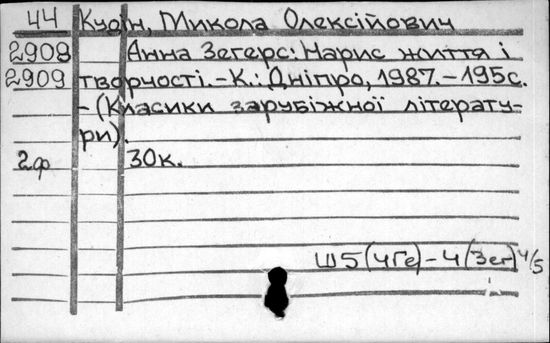 44 Кудін, Микола Олексійович
2908 Анна Зегерс: Нарис життя і
2909 творчості. - К.: Дніпро, 1987. - 195с.
- (Класики зарубіжної літерату-
ри).
2ф 30к.
Ш5(4Ге)-4(Зег) 4/5